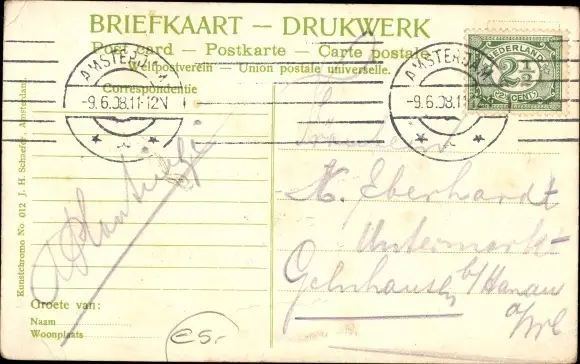 BRIEFKAART — DRUKWERK
Post card — Postkarte — Carte postale
Weltpostverein — Union postale universelle.
Correspondentie
AMSTERDAM
-9.6.08.11-12N
AMSTERDAM
-9.6.08.11-
NEDERLAND
2½
CENT
Kunstchromo No 012 J. H. Schaefer, Amsterdam.
H. Eberhardt
Untermarkt
Gelnhausen
b/Hanau
Groete van:
Naam
Woonplaats
€5-